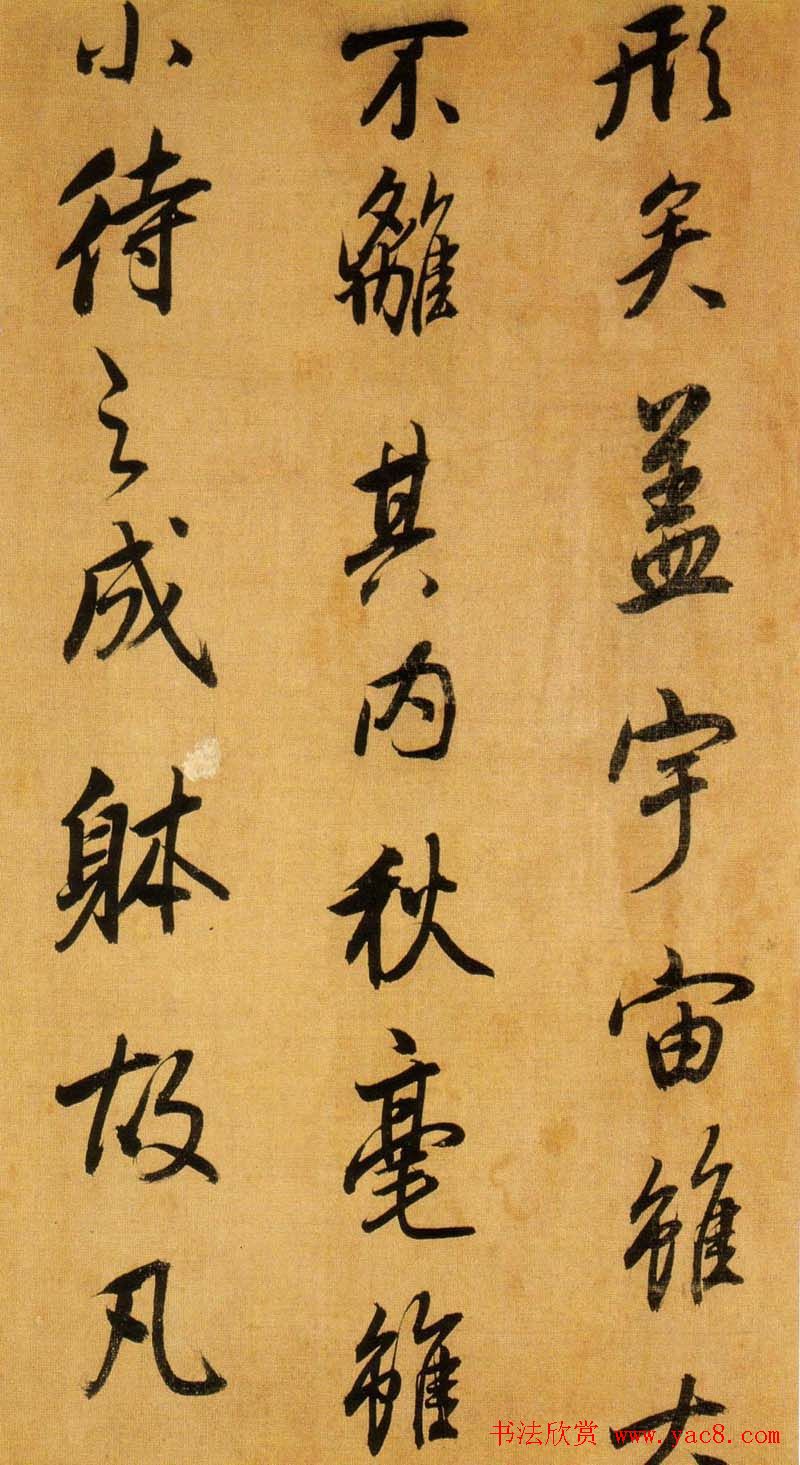 形矣盖宇宙雖大
不離其内秋毫雖
小待之成躰故凡
书法欣赏 www.yac8.com